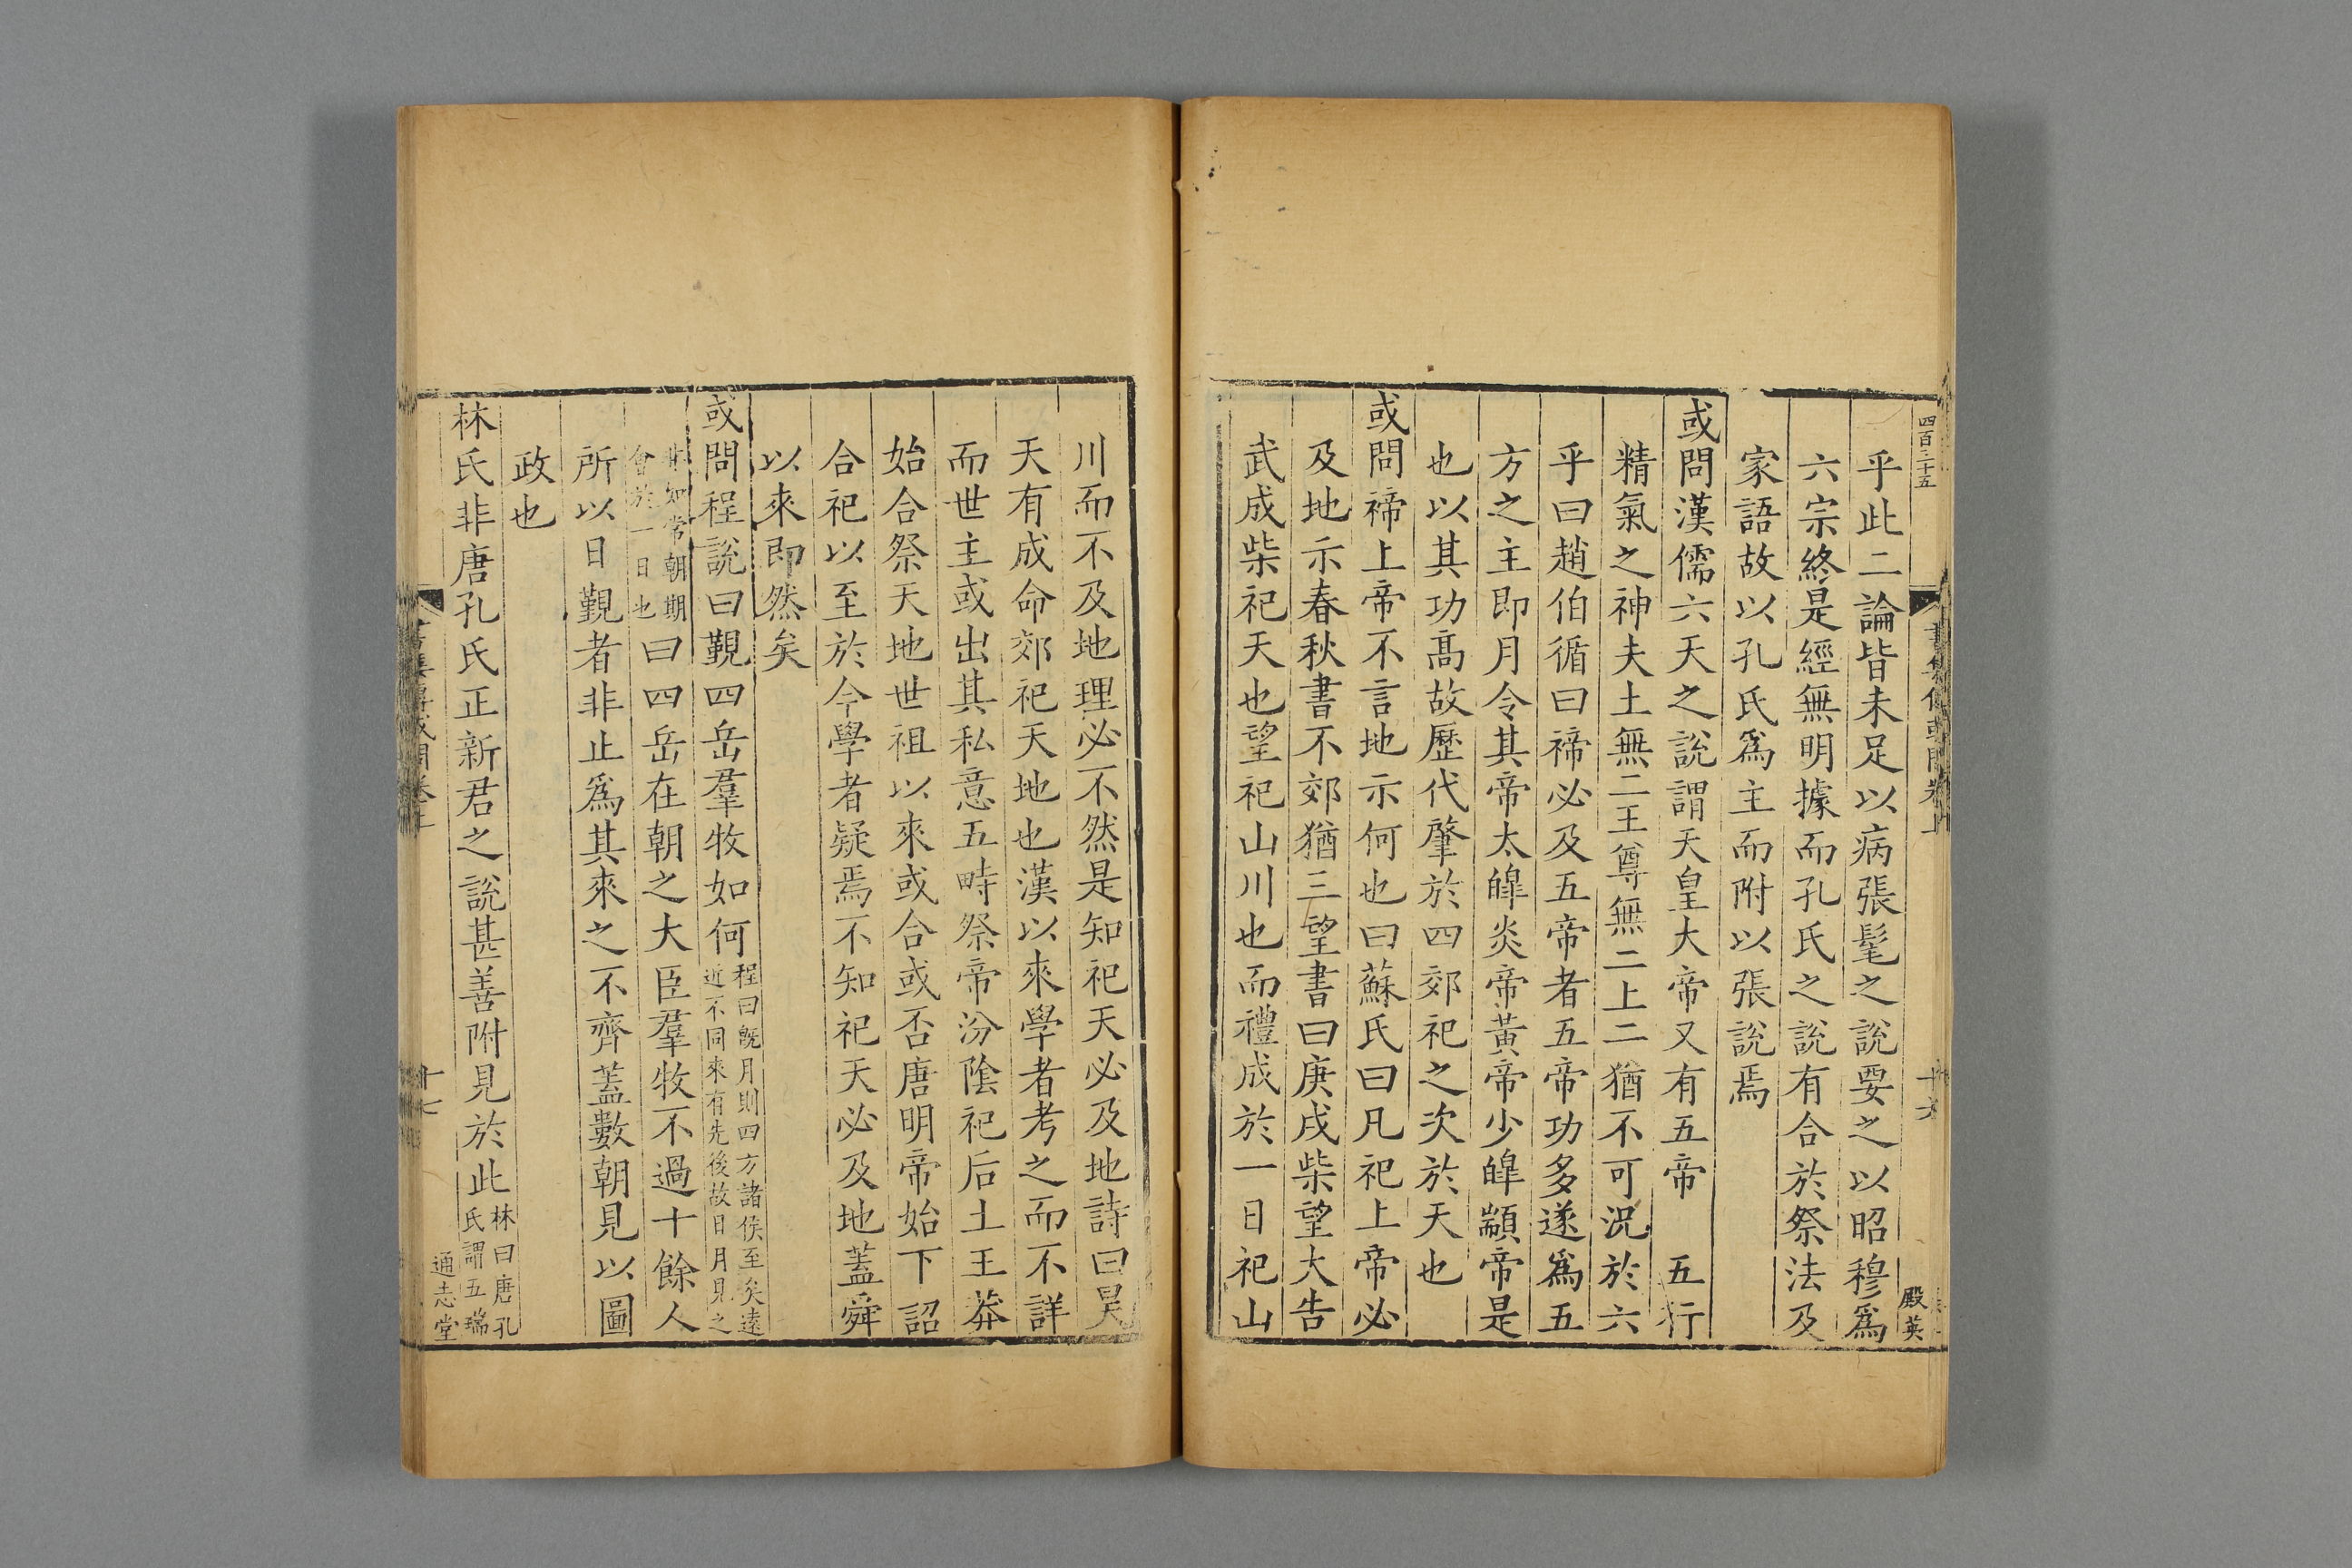 四百三十五
十六
殿英
乎此二論皆未足以病張髦之說要之以昭穆爲
六宗終是經無明據而孔氏之說有合於祭法及
家語故以孔氏爲主而附以張說焉
或問漢儒六天之說謂天皇大帝又有五帝 五行
精氣之神夫土無二王尊無二上二猶不可況於六
乎曰趙伯循曰禘必及五帝者五帝功多遂爲五
方之主即月令其帝太皥炎帝黃帝少皥顓帝是
也以其功高故歷代肇於四郊祀之次於天也
或問禘上帝不言地示何也曰蘇氏曰凡祀上帝必
及地示春秋書不郊猶三望書曰庚戌柴望大告
武成柴祀天也望祀山川也而禮成於一日祀山
川而不及地理必不然是知祀天必及地詩曰昊
天有成命郊祀天地也漢以來學者考之而不詳
而世主或出其私意五畤祭帝汾陰祀后土王莽
始合祭天地世祖以來或合或否唐明帝始下詔
合祀以至於今學者疑焉不知祀天必及地蓋舜
以來即然矣
或問程說曰覲四岳羣牧如何程曰旣月則四方諸侯至矣遠
近不同來有先後故日月見之
非如常朝期
會於一日也曰四岳在朝之大臣羣牧不過十餘人
所以日覲者非止爲其來之不齊蓋數朝見以圖
政也
林氏非唐孔氏正新君之說甚善附見於此林曰唐孔
氏謂五瑞
十七
通志堂